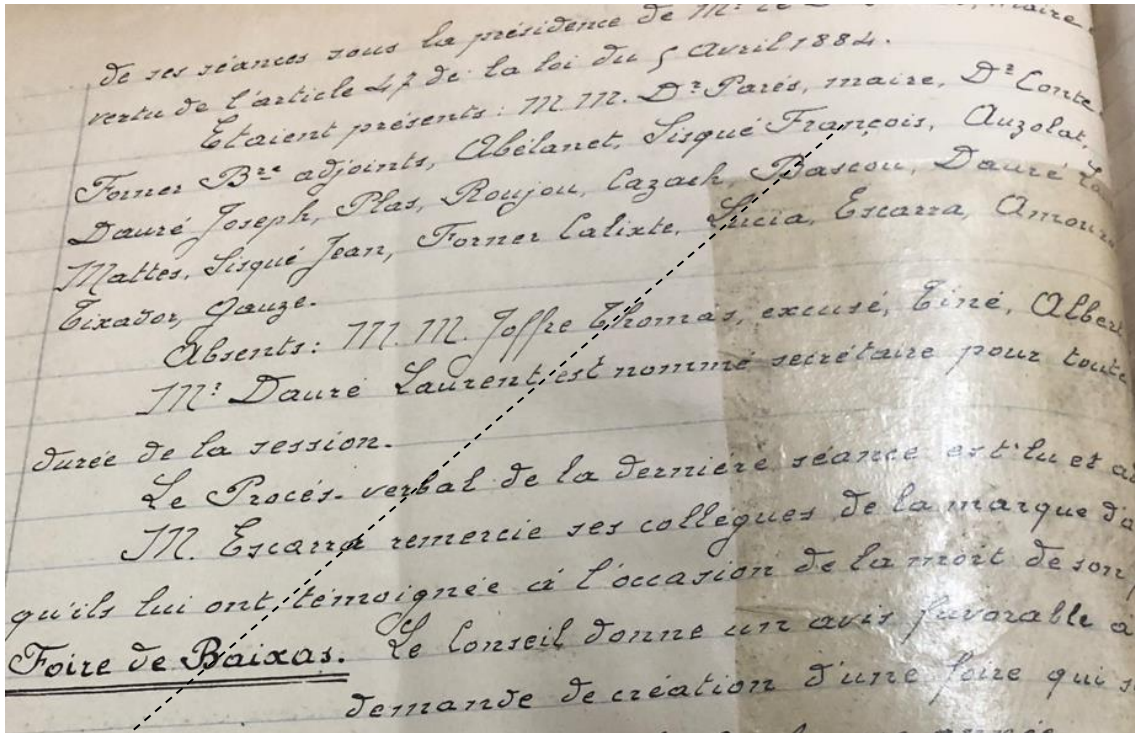 de ses séances sous la présidence de Mr le maire
vertu de l'article 47 de la loi du 5 Avril 1884.
Etaient présents: M. M. Dr Parés, maire, Dr Conte
Forner Bre adjoints, Abélanet, Sisqué François, Auzolat,
Dauré Joseph, Plas, Roujou, Cazach, Bascou, Dauré
Mattes, Sisqué Jean, Forner Calixte, Lucia, Escarra, Amouro
Tixador, Gauze.
Absents: M. M. Joffre Thomas, excusé, Tiné, Albert
Mr Dauré Laurent est nommé secrétaire pour toute
durée de la session.
Le Procés-verbal de la derniére séance est lu et
M. Escarra remercie ses collégues de la marque d'a
qu'ils lui ont témoignée à l'occasion de la mort de son
Foire de Baixas. Le Conseil donne un avis favorable à
demande de création d'une foire qui s